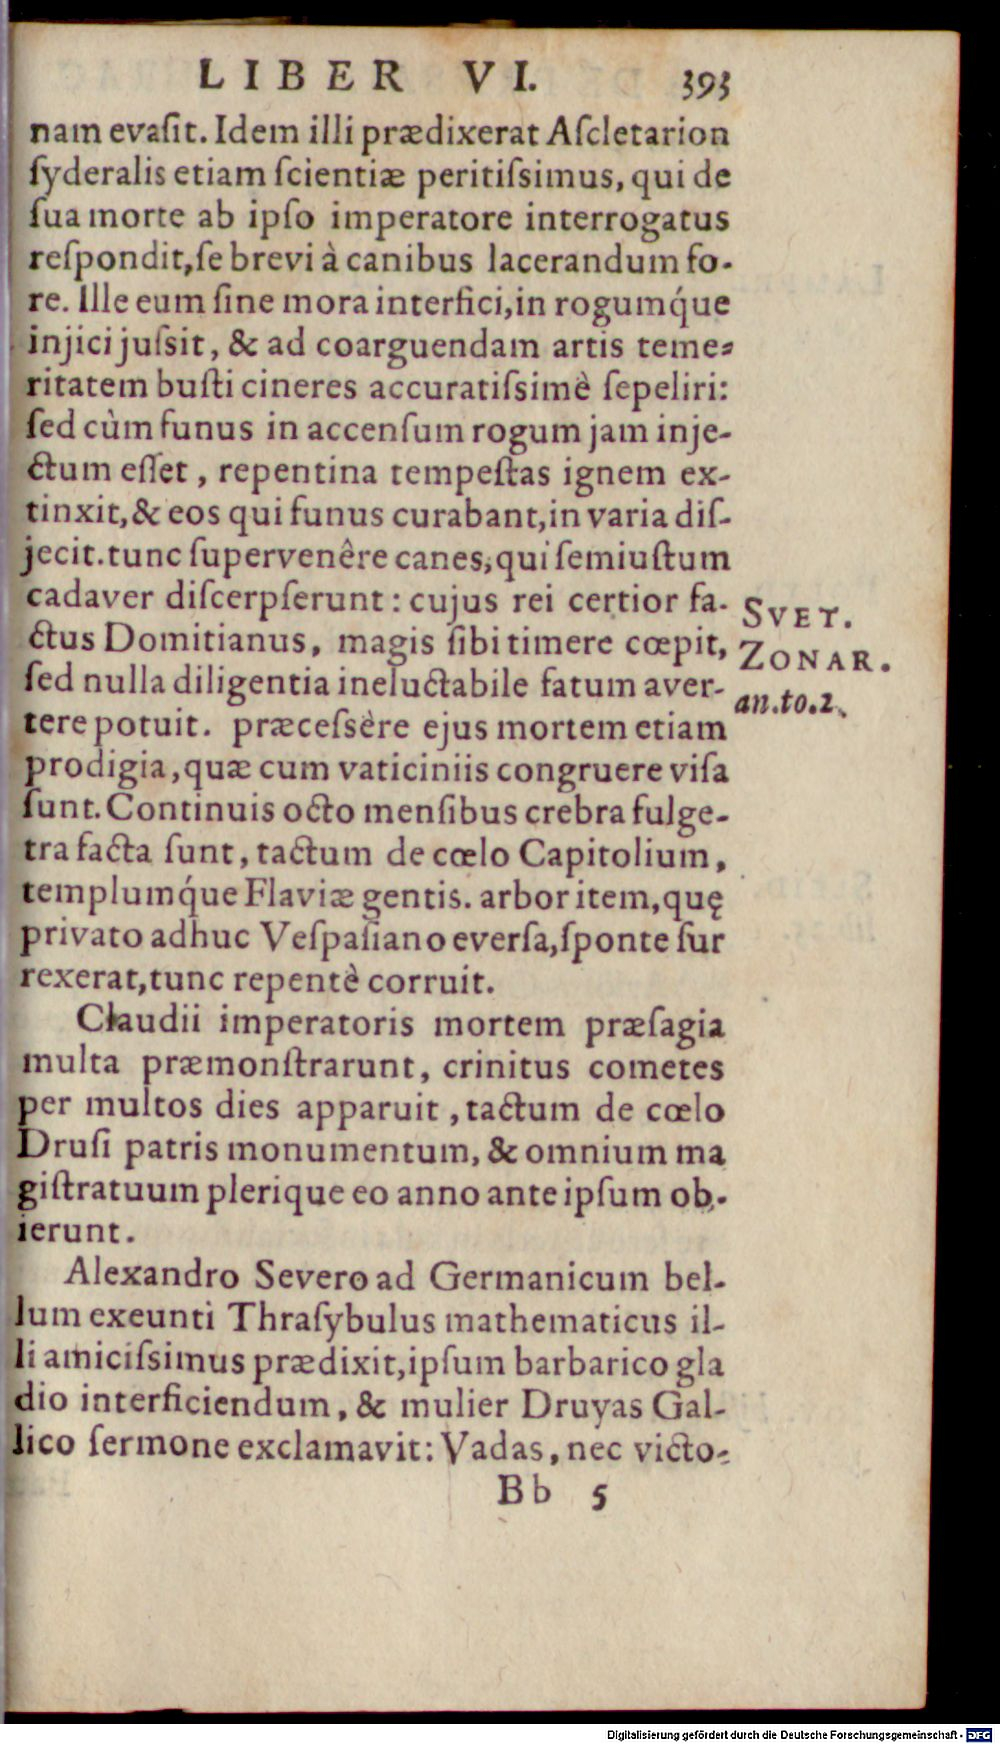 LIBER VI. 393
nam evaſit. Idem illi prædixerat Aſcletarion
ſyderalis etiam ſcientiæ peritiſsimus, qui de
ſua morte ab ipſo imperatore interrogatus
reſpondit, ſe brevi à canibus lacerandum fo-
re. Ille eum ſine mora interfici, in rogumq́ue
injici juſsit, & ad coarguendam artis teme-
ritatem buſti cineres accuratiſsimè ſepeliri:
ſed cùm funus in accenſum rogum jam inje-
ctum eſſet, repentina tempeſtas ignem ex-
tinxit, & eos qui funus curabant, in varia diſ-
jecit. tunc ſupervenêre canes, qui ſemiuſtum
cadaver diſcerpſerunt: cujus rei certior fa-
ctus Domitianus, magis ſibi timere cœpit,
ſed nulla diligentia ineluctabile fatum aver-
tere potuit. præceſsère ejus mortem etiam
prodigia, quæ cum vaticiniis congruere viſa
ſunt. Continuis octo menſibus crebra fulge-
tra facta ſunt, tactum de cœlo Capitolium,
templumq́ue Flaviæ gentis. arbor item, quę
privato adhuc Veſpaſiano everſa, ſponte ſur
rexerat, tunc repentè corruit.
SVET.
ZONAR.
an.to.2.
Claudii imperatoris mortem præſagia
multa præmonſtrarunt, crinitus cometes
per multos dies apparuit, tactum de cœlo
Druſi patris monumentum, & omnium ma
giſtratuum plerique eo anno ante ipſum ob-
ierunt.
Alexandro Severo ad Germanicum bel-
lum exeunti Thraſybulus mathematicus il-
li amiciſsimus prædixit, ipſum barbarico gla
dio interficiendum, & mulier Druyas Gal-
lico ſermone exclamavit: Vadas, nec victo-
Bb 5
Digitalisierung gefördert durch die Deutsche Forschungsgemeinschaft - DFG